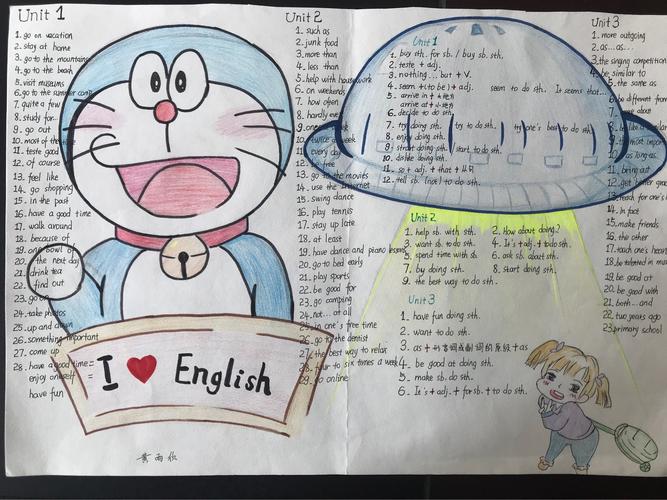 Unit 1
1. go on vacation
2. stay at home
3. go to the mountains
4. go to the beach
5. visit museums
6. go to the summer camp
7. quite a few
8. study for
9. go out
10. most of the time
11. taste good
12. of course
13. feel like
14. go shopping
15. in the past
16. have a good time
17. walk around
18. because of
19. one bowl of
20. the next day
21. drink tea
22. find out
23. go on
24. take photos
25. up and down
26. something important
27. come up
28. have a good time =
enjoy oneself =
have fun
I ❤ English
Unit 2
1. such as
2. junk food
3. more than
4. less than
5. help with housework
6. on weekends
7. how often
8. hardly ever
9. once a week
10. twice a week
11. every day
12. be free
13. go to the movies
14. use the Internet
15. swing dance
16. play tennis
17. stay up late
18. at least
19. have dance and piano lessons
20. go to bed early
21. play sports
22. be good for
23. go camping
24. not... at all
25. in one's free time
26. go to the dentist
27. the best way to relax
28. four to six times a week
29. go online
Unit 1
1. buy sth. for sb. / buy sb. sth.
2. taste + adj.
3. nothing... but + V.
4. seem + (to be) + adj. seem to do sth. It seems that...
5. arrive in +
arrive at +
6. decide to do sth.
7. try doing sth. try to do sth. try one's best to do sth.
8. enjoy doing sth.
9. start doing sth. start to do sth.
10. dislike doing sth.
11. so + adj. + that + 从句
12. tell sb. (not) to do sth.
Unit 2
1. help sb. with sth. 2. How about doing?
3. want sb. to do sth. 4. It's + adj. + to do sth.
5. spend time with sb. 6. ask sb. about sth.
7. by doing sth. 8. start doing sth.
9. the best way to do sth.
Unit 3
1. have fun doing sth.
2. want to do sth.
3. as + 形容词或副词的原级 + as
4. be good at doing sth.
5. make sb. do sth.
6. It's + adj. + for sb. + to do sth.
Unit 3
1. more outgoing
2. as... as...
3. the singing competition
4. be similar to
5. the same as
6. be different from
7. care about
8. be like a
9. the most impor
10. as long as
11. bring out
12. get better
13. reach for one's
14. In fact
15. make friends
16. the other
17. touch one's hear
18. be talented in mus
19. be good at
20. be good with
21. both... and
22. two years ago
23. primary school